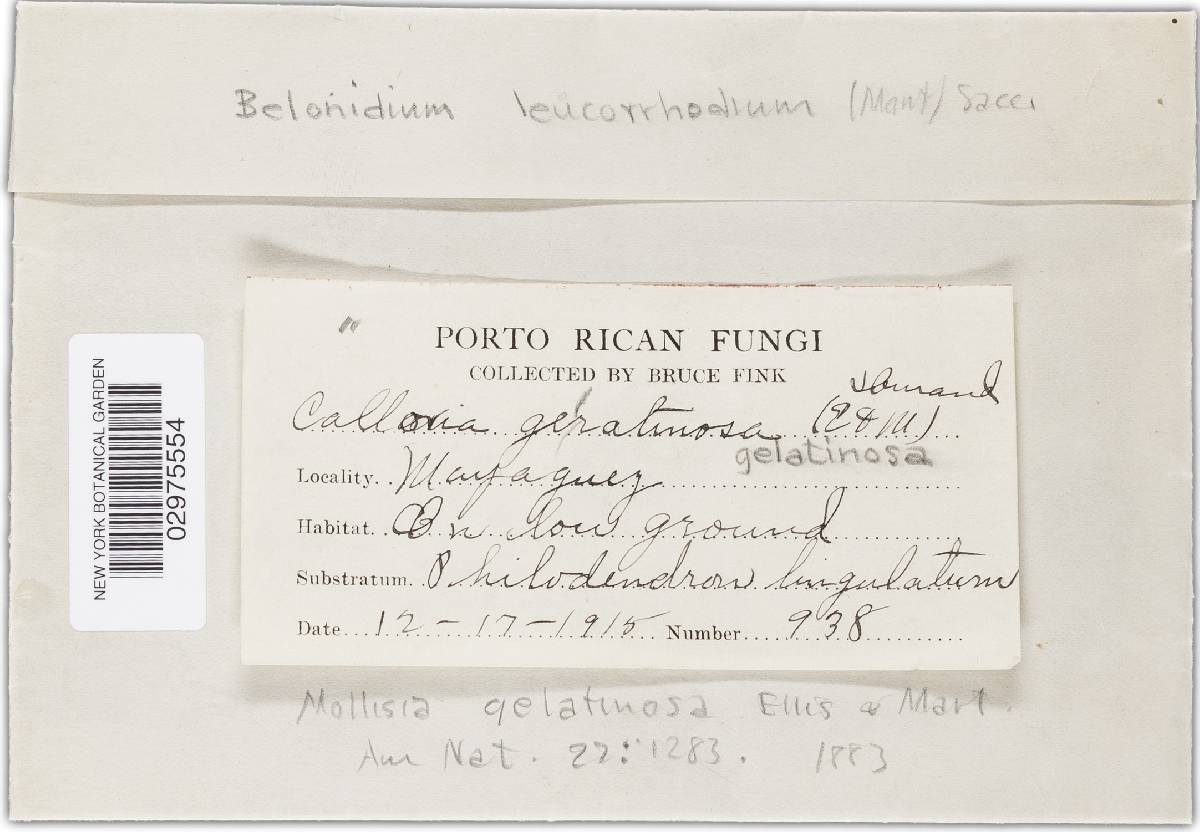 Belonidium leucorrhodium (Mont) Sacc.
"
PORTO RICAN FUNGI
COLLECTED BY BRUCE FINK
Durand
Calloria geratinosa (E & M)
gelatinosa
Locality. Mayaguez
Habitat. On low ground
Substratum. Philodendron lingulatum
Date 12-17-1915 Number 938
Mollisia gelatinosa Ellis & Mart.
Am Nat. 22: 1283. 1883
NEW YORK BOTANICAL GARDEN
02975554